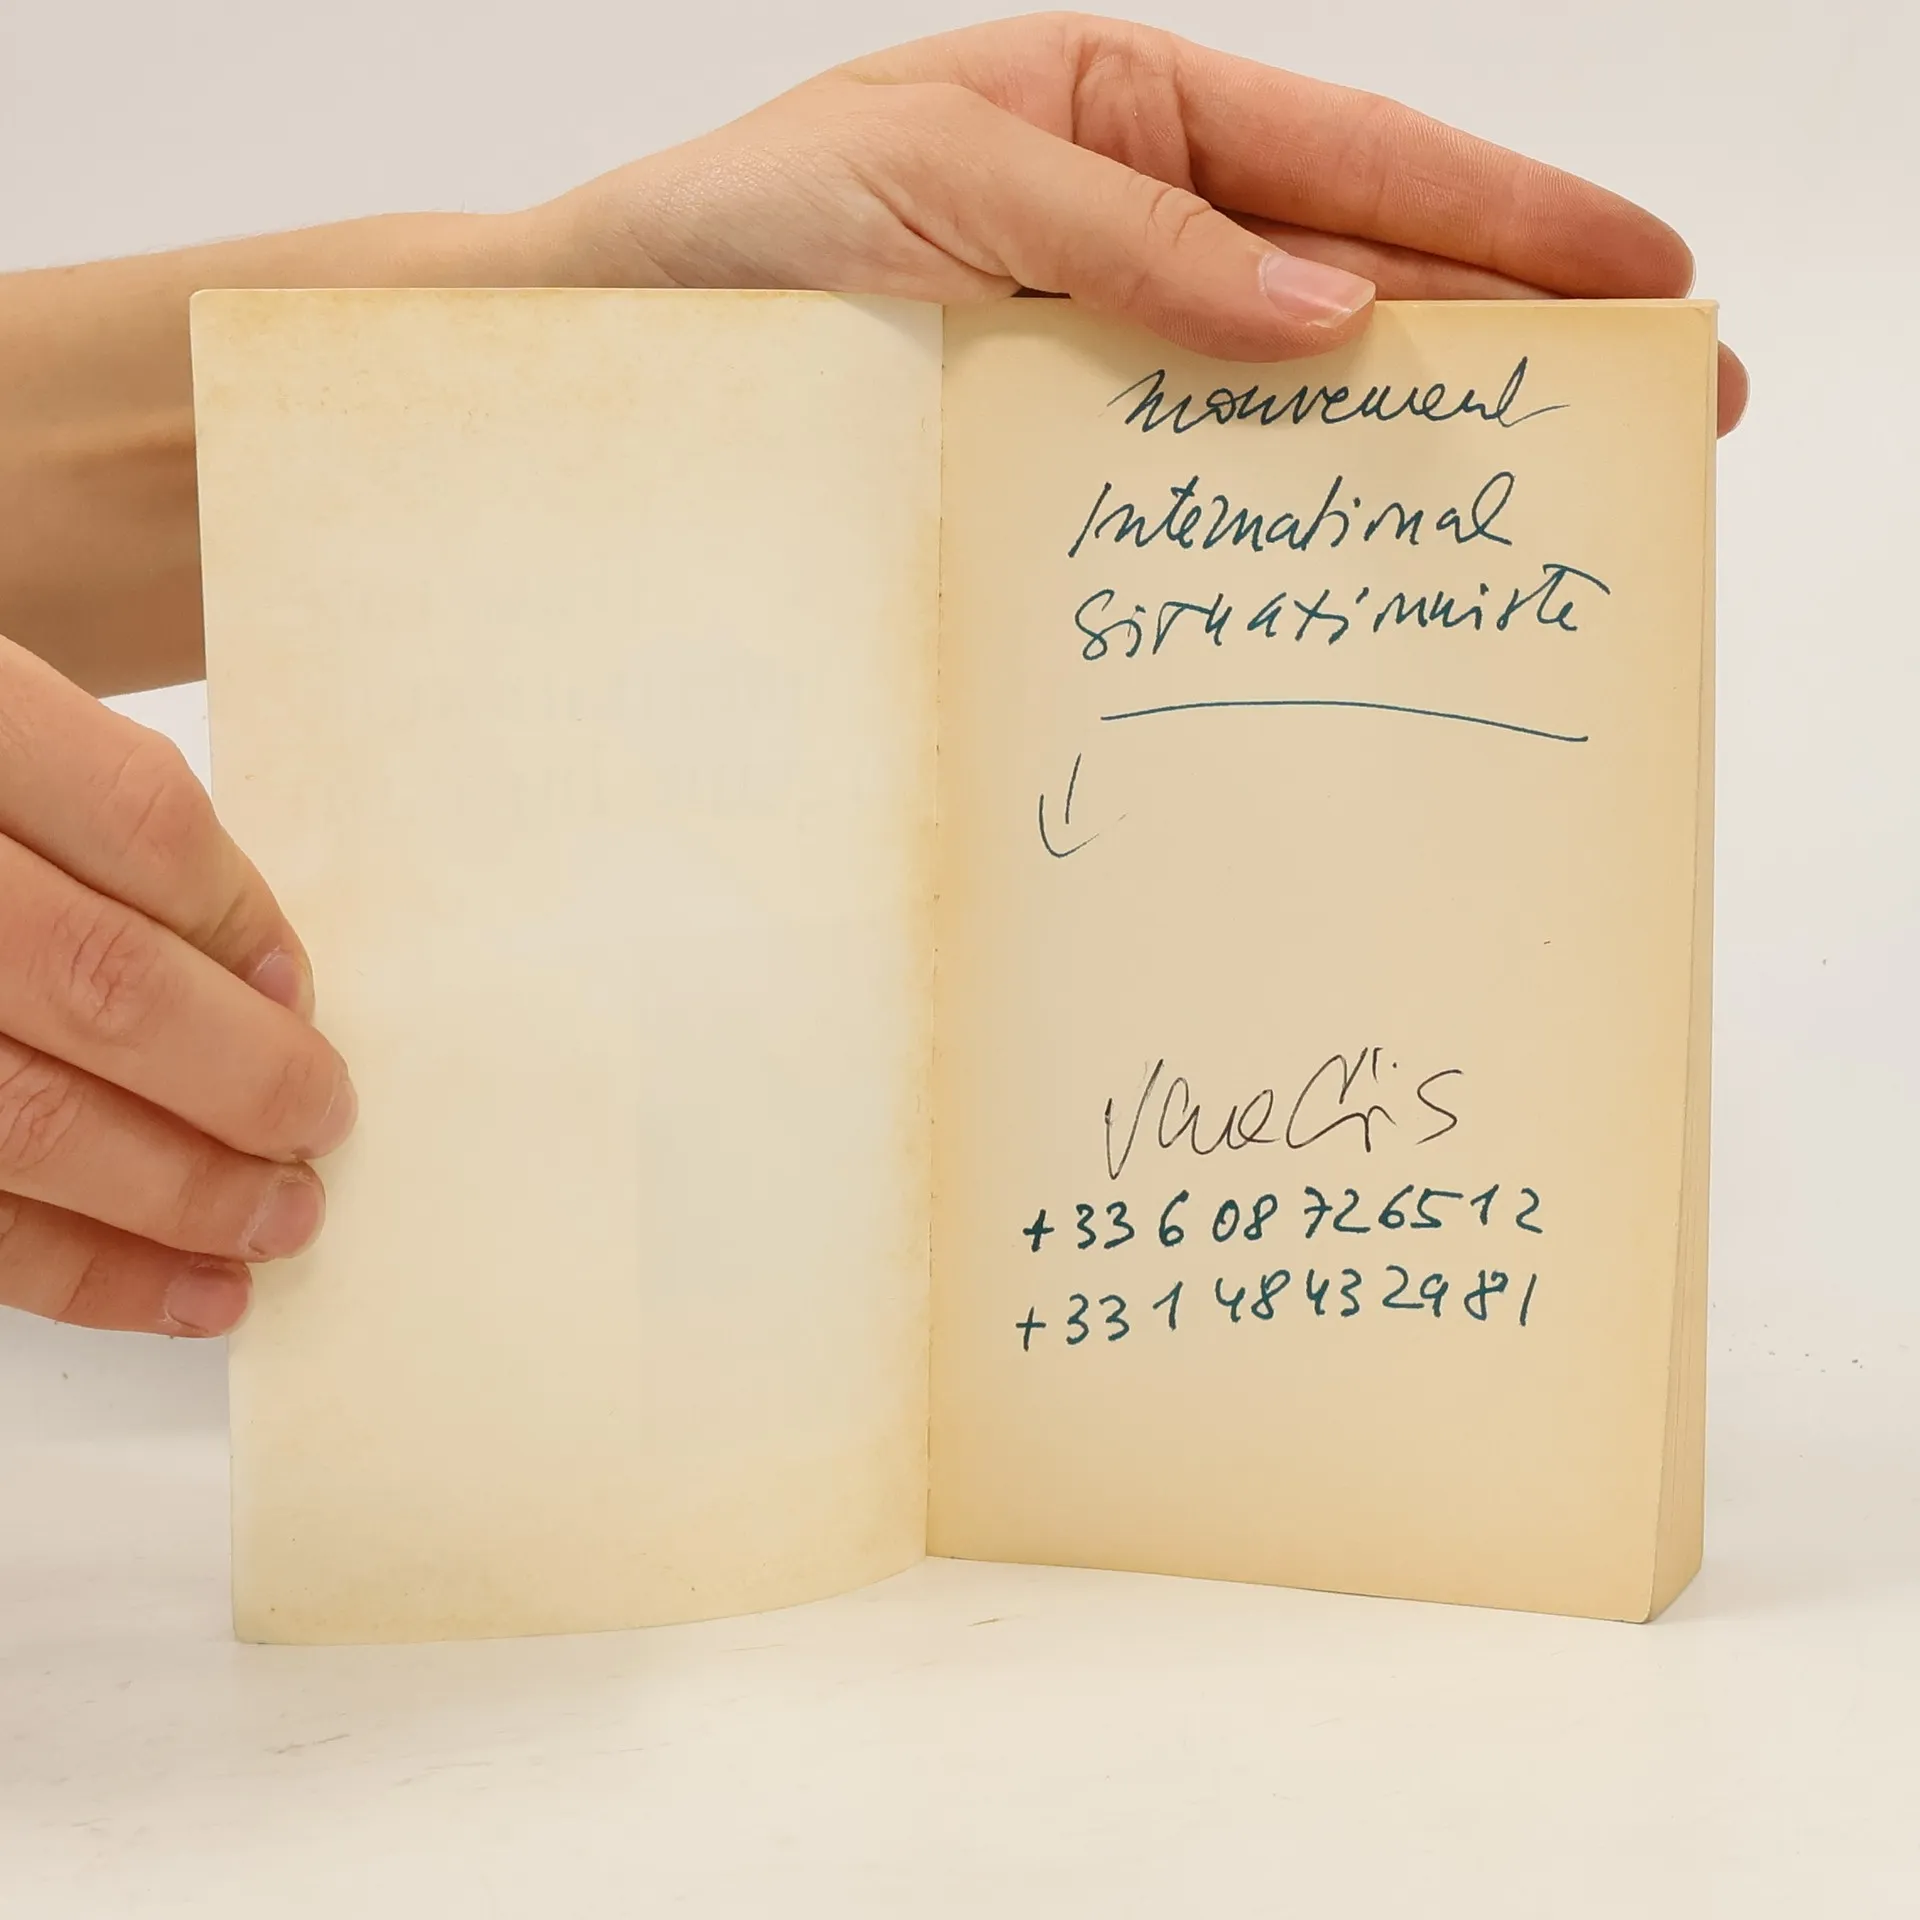 mouvement
International
Situationniste
+33 6 08 72 65 12
+33 1 48 43 29 81